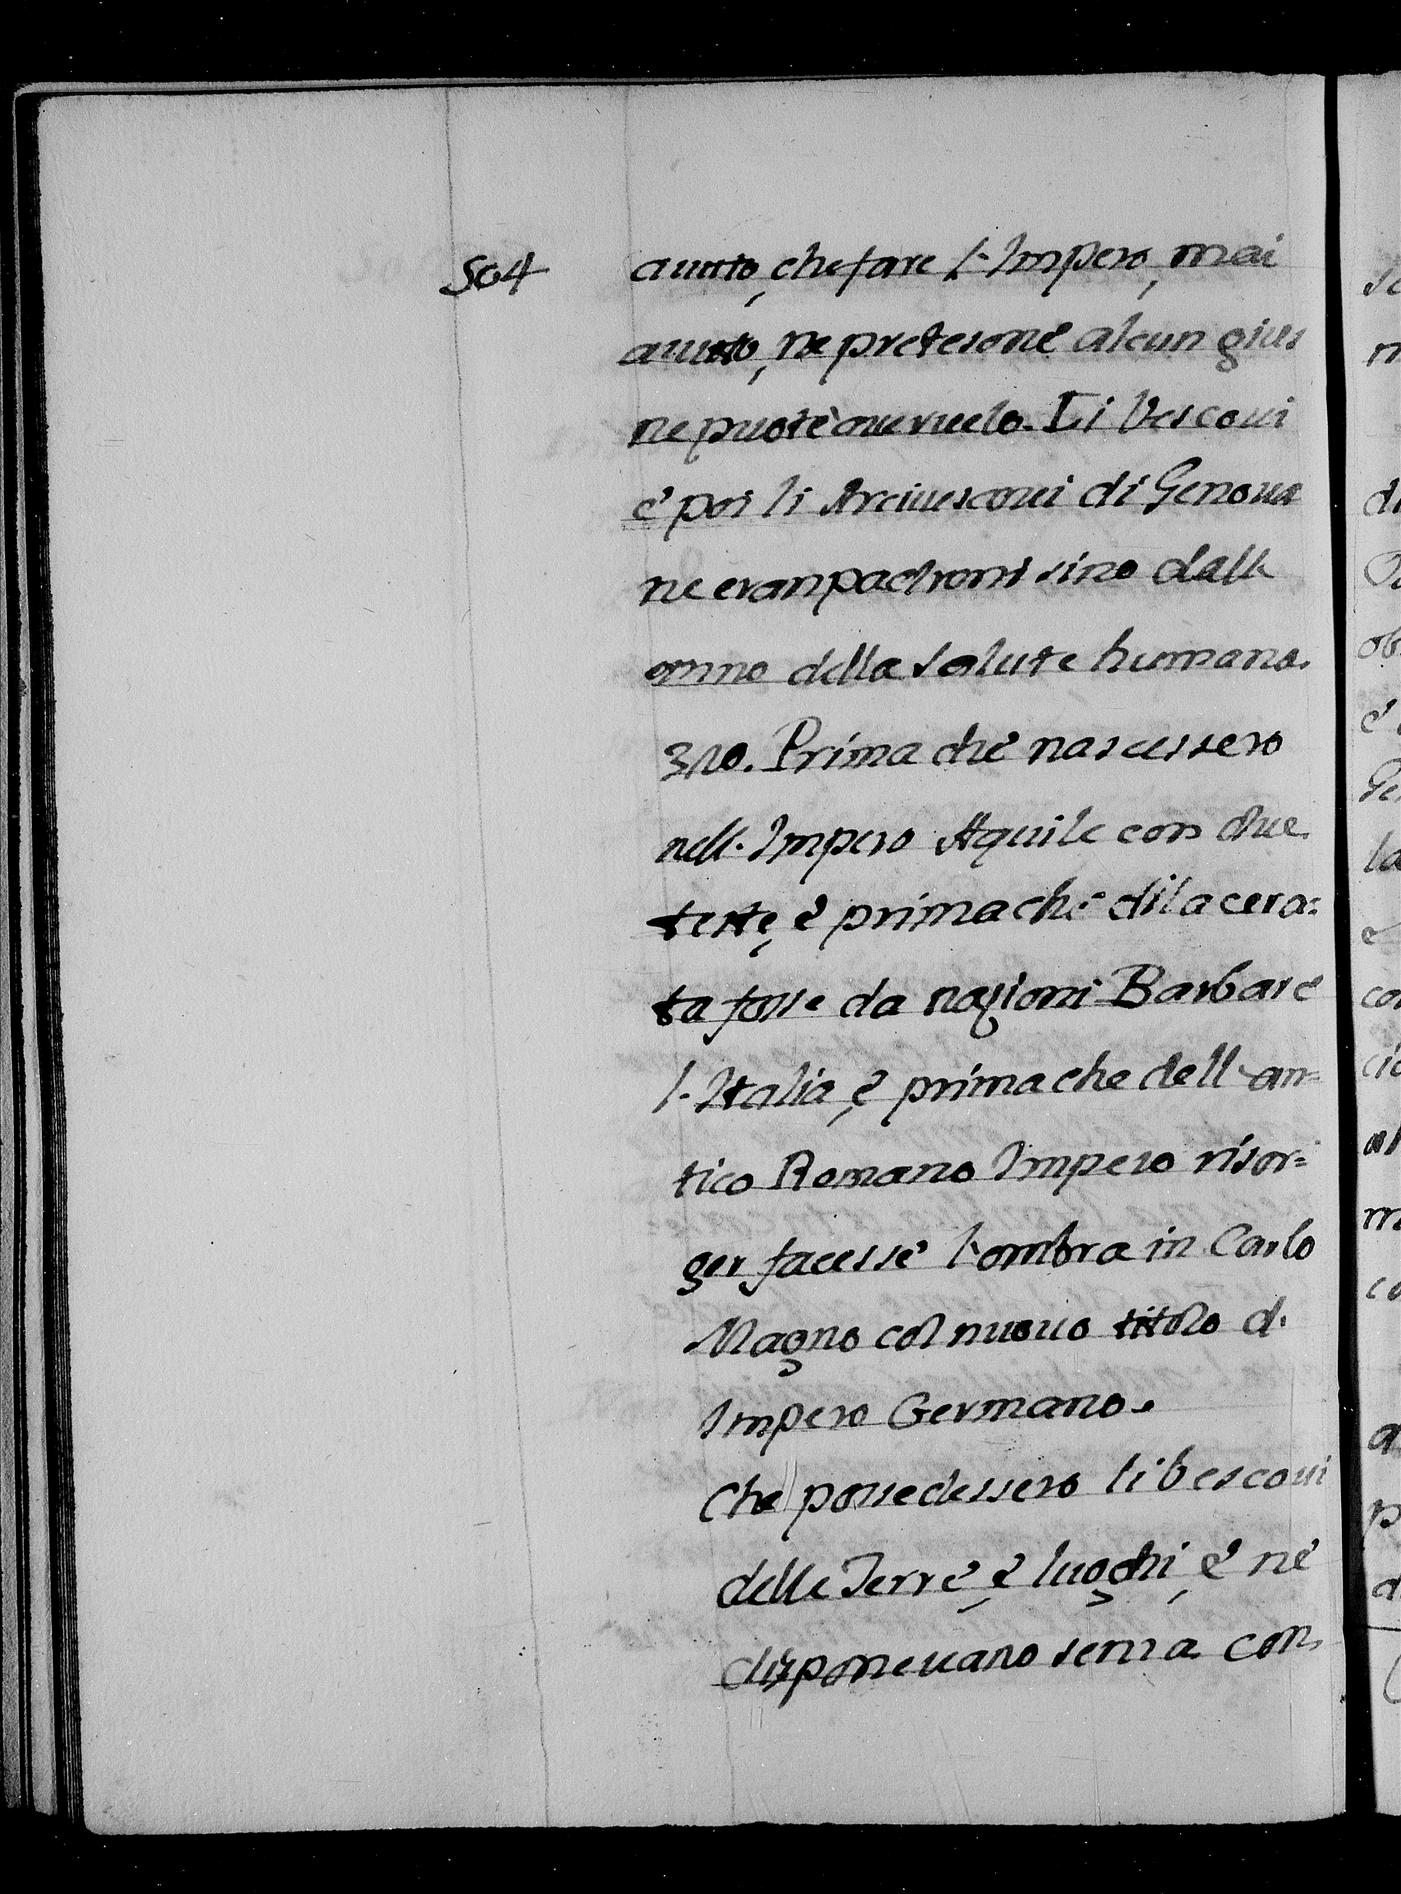 504
auuto, che fare l'Impero, mai
auuto, ne pretesone alcun gius
ne puotè aueruelo. Li Vescoui
e' poi li Arciuescoui di Genoua
ne eran padroni sino dall'
anno della salute humana.
310. Prima che nascessero
nell'Impero Aquile con due
teste, e' prima che dilacera=
ta fosse da nazioni Barbare
l'Italia, e' prima che dell'an=
tico Romano Impero risor=
ger facesse l'ombra in Carlo
Magno col nuouo titolo d'
Impero Germano.
Che possedessero li Vescoui
delle Terre, e' luoghi, e' ne
disponeuano senza con